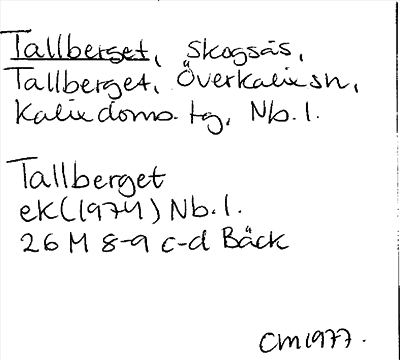 Tallberget, skogsås,
Tallberget, Överkalix sn,
Kalix doms. tg, Nb. l.
Tallberget
ek (1974) Nb. l.
26 M 8-9 c-d Bäck
CM 1977.